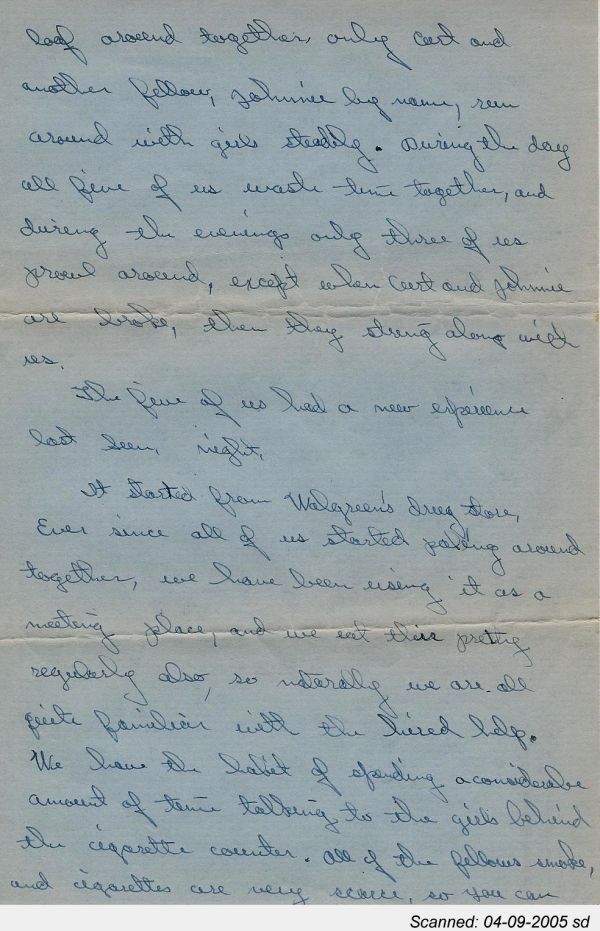 loaf around together, only Curt and
another fellow, Johnnie by name, run
around with girls steadily. During the day
all five of us waste time together, and
during the evenings only three of us
prowl around, except when Curt and Johnnie
are broke, then they string along with
us.
The five of us had a new experience
last Sun. night.
It started from Walgreen's drug store,
Ever since all of us started paling around
together, we have been using it as a
meeting place, and we eat thier pretty
regularly also, so naturally we are all
quite familiar with the hired help.
We have the habit of spending a considerable
amount of time talking to the girls behind
the cigarette counter. All of the fellows smoke,
and cigarettes are very scarce, so you can
Scanned: 04-09-2005 sd